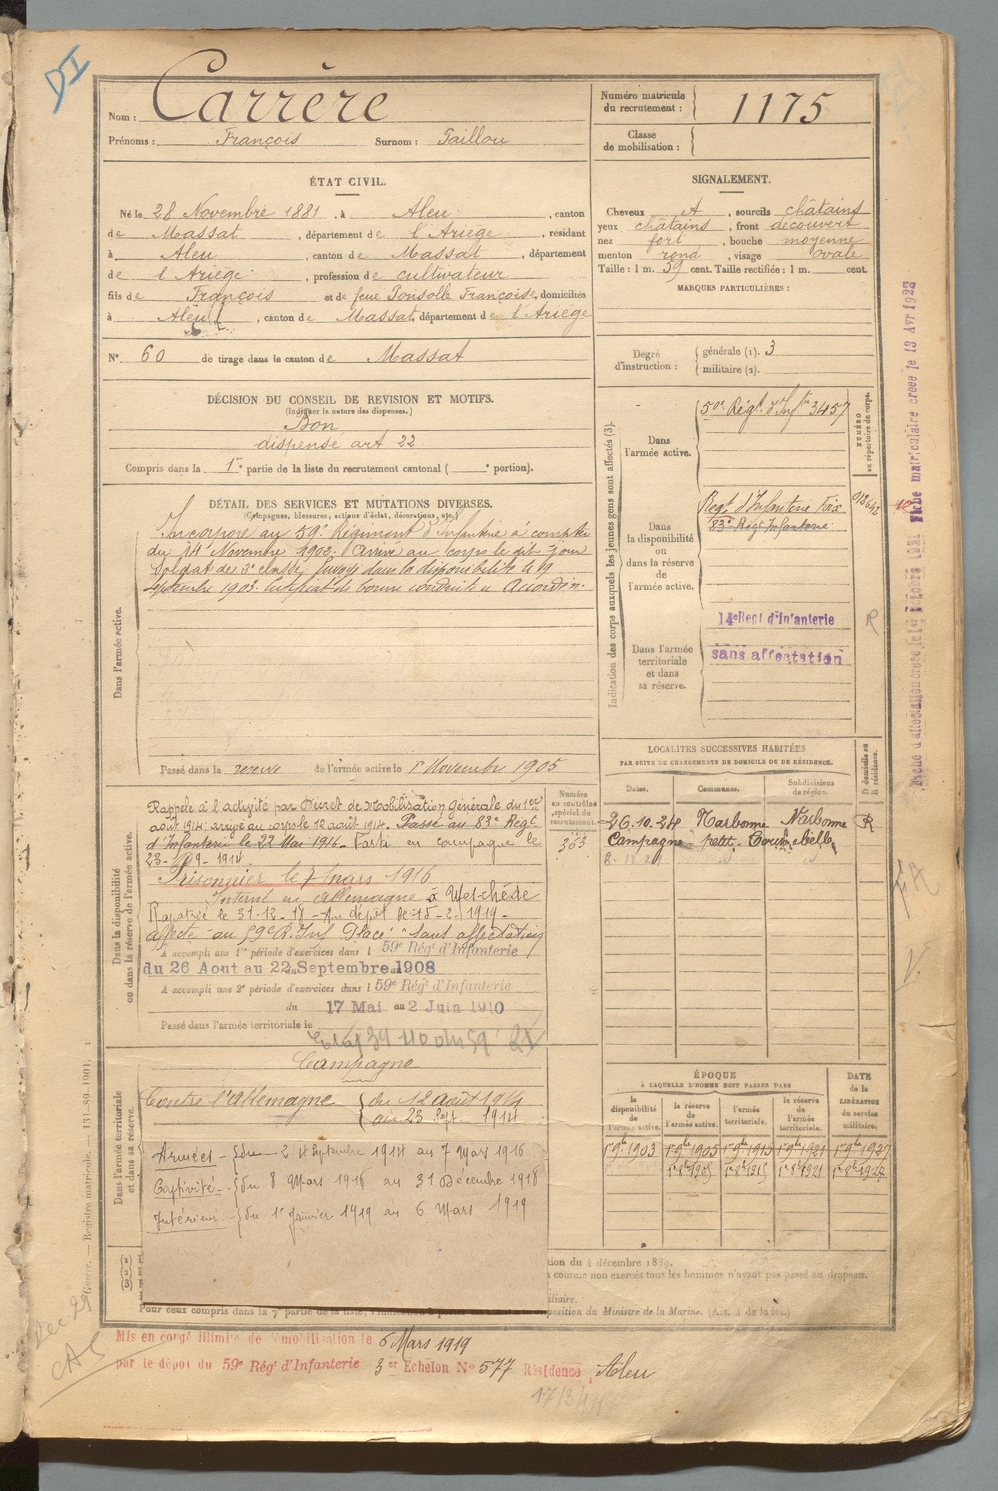 DI
Nom : Carrère
Prénoms : François Surnom : Taillou
Numéro matricule du recrutement : 1175
Classe de mobilisation :
ÉTAT CIVIL.
Né le 28 Novembre 1881, à Aleu, canton
de Massat, département de l'Ariège, résidant
à Aleu, canton de Massat, département
de l'Ariège, profession de cultivateur
fils de François et de feue Ponsolle Françoise, domiciliés
à Aleu, canton de Massat, département de l'Ariège
N° 60 de tirage dans le canton de Massat
SIGNALEMENT.
Cheveux, sourcils châtains
yeux châtains, front découvert
nez fort, bouche moyenne
menton rond, visage ovale
Taille : 1 m. 59 cent. Taille rectifiée : 1 m. cent.
MARQUES PARTICULIÈRES :
Degré d'instruction : générale (1). 3
militaire (2).
DÉCISION DU CONSEIL DE REVISION ET MOTIFS.
(Indiquer la nature des dispenses.)
Bon
dispensé art 22
Compris dans la 1re partie de la liste du recrutement cantonal ( e portion).
DÉTAIL DES SERVICES ET MUTATIONS DIVERSES.
(Campagnes, blessures, actions d'éclat, décorations, etc.)
Dans l'armée active.
Incorporé au 59e Régiment d'Infanterie à compter
du 14 Novembre 1902. Arrivé au corps le dit jour
Soldat de 2e classe. Envoyé dans la disponibilité le 19
septembre 1903. Certificat de bonne conduite « Accordé ».
Passé dans la réserve de l'armée active le 1er Novembre 1905
Indication des corps auxquels les jeunes gens sont affectés (3).
NUMÉRO au répertoire du corps.
Dans l'armée active.
Régt. d'Infie 3457
Dans la disponibilité ou dans la réserve de l'armée active.
Régt d'Infanterie Foix
83e Régt Infanterie
Dans l'armée territoriale et dans sa réserve.
14e Regt d'Infanterie
sans affectation
R
Fiche matriculaire créée le 13 Avr 1922
Dans la disponibilité ou dans la réserve de l'armée active.
Numéro au contrôle spécial du recrutement.
363
Rappelé à l'activité par Décret de Mobilisation générale du 1er
août 1914; arrivé au corps le 12 août 1914. Passé au 83e Régt
d'Infanterie le 22 Mai 1916. Parti en campagne le
23-9-1914
Prisonnier le 7 mars 1916
Interné en Allemagne à Wetchède
Rapatrié le 31-12-18 - Au dépôt le 15-2-1919 -
affecté au 59e R. Inf Placé "sans affectation"
A accompli une 1re période d'exercices dans l 59e Régt d'Infanterie
du 26 Aout au 22 Septembre 1908
A accompli une 2e période d'exercices dans l 59e Régt d'Infanterie
du 17 Mai au 2 Juin 1910
Passé dans l'armée territoriale le
LOCALITÉS SUCCESSIVES HABITÉES
PAR SUITE DE CHANGEMENTS DE DOMICILE OU DE RÉSIDENCE.
Dates. Communes. Subdivisions de région. D domicile ou R résidence.
26.10.24 Narbonne Narbonne R
Campagne petit
Dans l'armée territoriale et dans sa réserve.
Campagne
Contre l'Allemagne du 12 août 1914
au 23 Sept 1914
Armées - du 24 Septembre 1914 au 7 Mars 1916
Captivité - du 8 Mars 1916 au 31 Décembre 1918
Intérieur - du 1er Janvier 1919 au 6 Mars 1919
ÉPOQUE
À LAQUELLE L'HOMME DOIT PASSER DANS
la disponibilité de l'armée active. la réserve de l'armée active. l'armée territoriale. la réserve de l'armée territoriale.
DATE de la LIBÉRATION du service militaire.
1er 9bre 1903 1er 9bre 1905 1er 9bre 1915 1er 9bre 1921 1er 9bre 1927
1er 8bre 1905 1er 8bre 1915 1er 8bre 1921 1er 8bre 1927
(1)
(2)
(3)
du 4 décembre 1889.
comme non exercés tous les hommes n'ayant pas passé au drapeau.
Pour ceux compris dans la 7e partie de la liste, position du Ministre de la Marine.
Mis en congé illimité de démobilisation le 6 Mars 1919
par le dépôt du 59e Régt d'Infanterie 3er Echelon N° 577 Résidence Aleu
Guerre. — Registre matricule. — 131-89-1901.